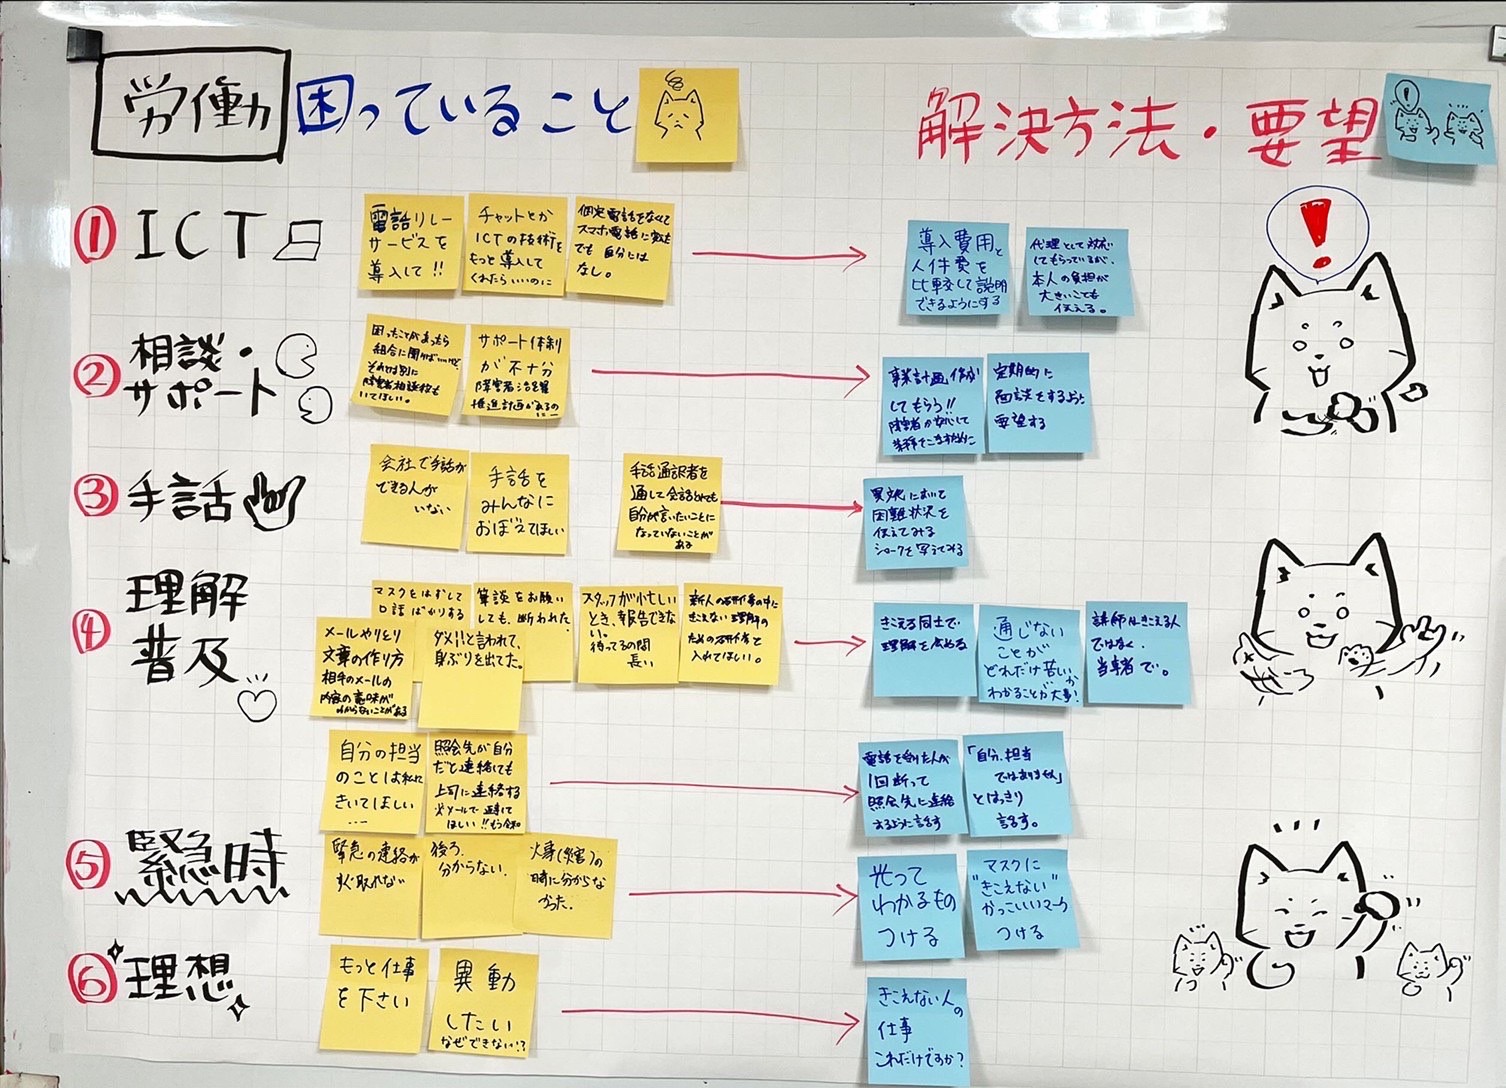 労働 困っていること
解決方法・要望
① ICT
電話リレー
サービスを
導入して!!
チャットとか
ICTの技術を
もっと導入して
くれたらいいのに
固定電話をなくして
スマホ電話に変えた
でも自分には
なし。
導入費用と
人件費を
比較して説明
できるようにする
代理として対応
してもらっているが、
本人の負担が
大きいことも
伝える。
② 相談・
サポート
困ったことがあったら
組合に聞けばいいけど、
それとは別に
障害者相談役も
いてほしい。
サポート体制
が不十分
障害者活躍
推進計画があるのに…
事業計画作成
してもらう!!
障害者が安心して
定期的に
面談をするように
要望する
③ 手話
会社で手話が
できる人が
いない
手話を
みんなに
おぼえてほしい
手話通訳者を
通して会話しても
自分が言いたいことに
なっていないことが
ある
実体において
困難状況を
伝えてみる
④ 理解
普及
マスクをはずして
口話ばかりする
筆談をお願い
しても、断われた。
スタッフが忙しい
とき、報告できな
い。
待ってるの間
長い
新人の研修の中に
きこえない理解の
ための研修を
入れてほしい。
メールやりとり
文章の作り方
相手のメールの
内容の意味が
わからないことがある
ダメ!!と言われて、
身ぶりを出てた。
きこえる同士で
理解を広める
通じない
ことが
どれだけ苦しいか
わかることが大事!
講師はきこえる人
ではなく、
当事者で。
自分の担当
のことは私に
きいてほしい
…
照会先が自分
だと連絡しても
上司に連絡する
※メールで返事して
ほしい!!もう令和
電話を受けた人が
1回断って
照会先に連絡
するように話す
「自分、担当
ではありません」
とはっきり
話す。
⑤ 緊急時
緊急の連絡が
すぐ取れない
後ろ、
分からない。
火事(災害)の
時に分からな
かった。
光って
わかるもの
つける
マスクに
"きこえない"
かっこいいマーク
つける
⑥ 理想
もっと仕事
を下さい
異動
したい
なぜできない!?
きこえない人の
仕事
これだけですか?